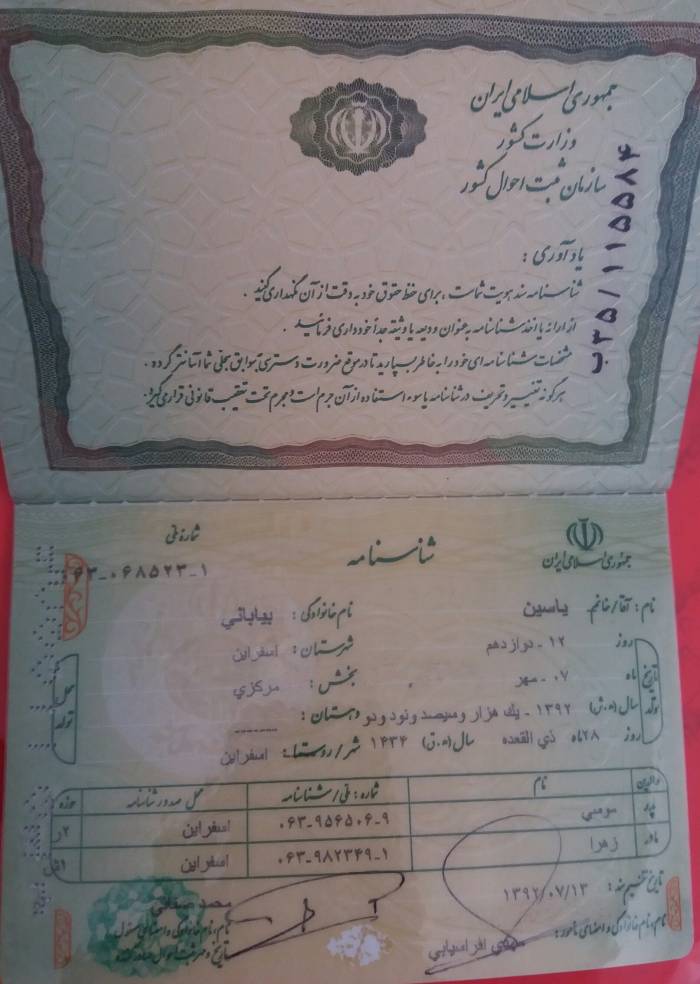 جمهوری اسلامی ایران
وزارت کشور
سازمان ثبت احوال کشور
ب۳۵/۱۱۵۵۸۴
یادآوری :
شناسنامه سند هویت شماست ، برای حفظ حقوق خود به دقت از آن نگهداری کنید .
از ارائه یا اخذ شناسنامه به عنوان ودیعه یا وثیقه جداً خودداری فرمائید .
مشخصات شناسنامه ای خود را به خاطر بسپارید تا در موقع ضرورت دسترسی به سوابق سجلی شما آسانتر گردد .
هرگونه تغییر و تحریف در شناسنامه یا سوء استفاده از آن جرم است و مجرم تحت تعقیب قانونی قرار می گیرد.
جمهوری اسلامی ایران
شناسنامه
شماره ملی
۰۶۳-۰۶۸۵۲۳-۱
نام : آقا/خانم یاسین نام خانوادگی : بیاباتي
تاریخ تولد
روز ۱۲ - دوازدهم شهرستان : اسفراین
ماه ۰۷ - مهر بخش : مرکزي
سال (ه.ش) ۱۳۹۲ - یك هزار وسیصد ونود ودو دهستان : -------
روز ۲۸ ماه ذي القعده سال (ه.ق) ۱۴۳۴ شهر/روستا : اسفراین
محل تولد
والدین نام شماره : ملی/شناسنامه محل صدور شناسنامه حوزه
پدر موسي ۰۶۳-۹۵۶۵۰۶-۹ اسفراین ۲ر
مادر زهرا ۰۶۳-۹۸۲۳۴۹-۱ اسفراین
تاریخ تنظیم سند : ۱۳۹۲/۰۷/۱۳
نام، نام خانوادگی و امضای مأمور : افراسیابي
محمد
نام، نام خانوادگی و امضای مسئول